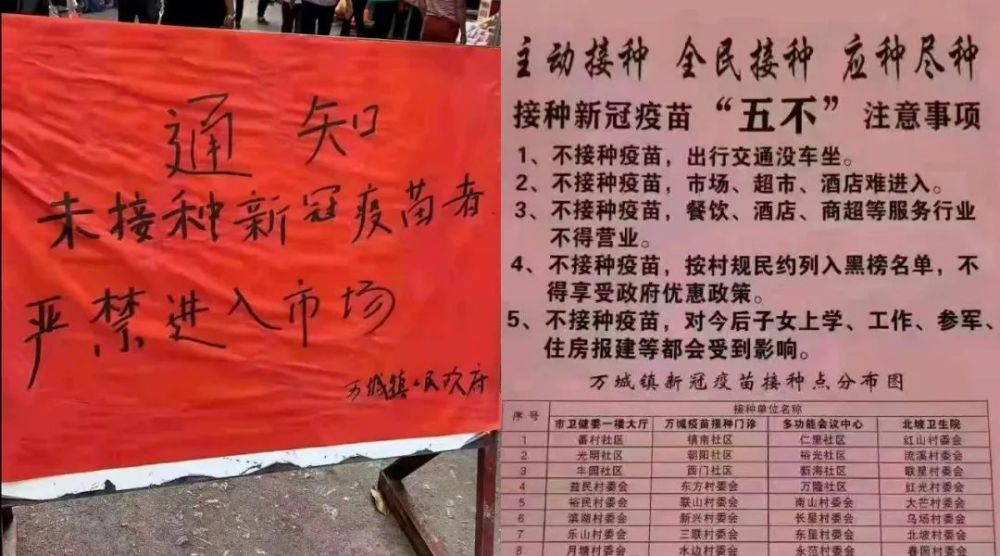 通知
未接种新冠疫苗者
严禁进入市场
万城镇人民政府
主动接种 全民接种 应种尽种
接种新冠疫苗“五不”注意事项
1、不接种疫苗，出行交通没车坐。
2、不接种疫苗，市场、超市、酒店难进入。
3、不接种疫苗，餐饮、酒店、商超等服务行业
不得营业。
4、不接种疫苗，按村规民约列入黑榜名单，不
得享受政府优惠政策。
5、不接种疫苗，对今后子女上学、工作、参军、
住房报建等都会受到影响。
万城镇新冠疫苗接种点分布图
序号 接种单位名称
市卫健委一楼大厅 万城疫苗接种门诊 多功能会议中心 北坡卫生院
1 番村社区 镇南社区 仁里社区 红山村委会
2 光明社区 朝阳社区 裕光社区 流溪村委会
3 丰园社区 西门社区 新海社区 联星村委会
4 益民村委会 东方村委会 万隆社区 红光村委会
5 裕民村委会 联山村委会 南山村委会 大芒村委会
6 滨湖村委会 新兴村委会 长星村委会 乌场村委会
7 乐山村委会 三联村委会 东星村委会 北坡村委会
8 月塘村委会 水边村委会 永范村委会